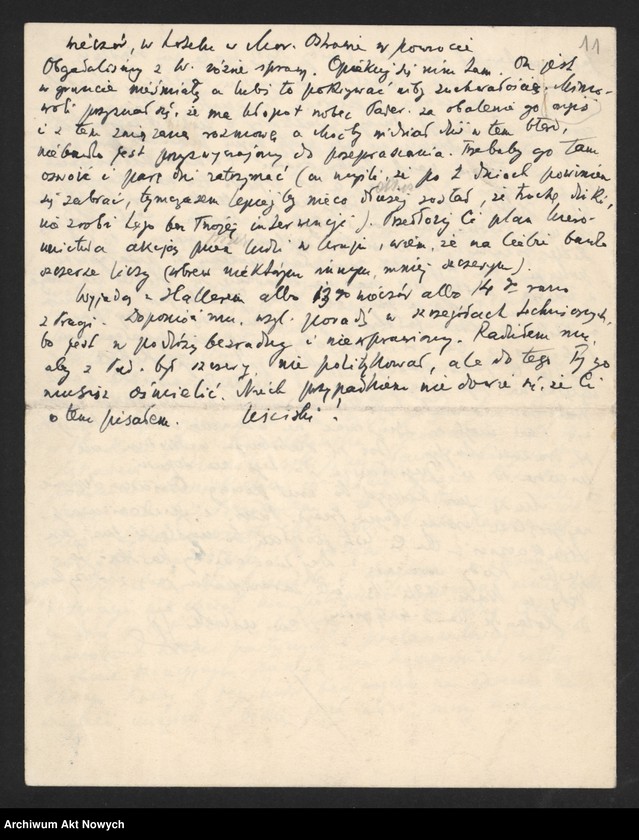 11
wieczór, w hotelu w Mor. Ostrawie w powrocie
Obgadaliśmy z W. różne sprawy. Opiekuj się nim tam. On jest
w gruncie nieśmiały a lubi to pokrywać niby zuchwałością. Mimo-
woli przyznał się, że ma kłopot wobec Pader. za obalenie go
i z tem związaną rozmową a choćby widział dziś w tem błąd,
niebardzo jest przyzwyczajony do przepraszania. Trzebaby go tam
oswoić i parę dni zatrzymać (on myśli, że po 2 dniach powinien
się zabrać, tymczasem lepiej by nieco dłużej został, że trochę dziki,
nie zrobi tego bez Twojej interwencji). Przedłoży Ci plan kiero-
wnictwa akcją przez ludzi w kraju, wiem, że na Ciebie bardzo
szczerze liczy (wbrew niektórym innym, mniej szczerym).
Wyjadą z Hallerem albo 13 go wieczór albo 14 go rano
z Pragi. Dopomóż mu, wzgl. poradź w szczegółach technicznych,
bo jest w podróży bezradny i niewprawiony. Radziłem mu,
aby z Pad. był szczery, nie politykował, ale do tego Ty go
musisz ośmielić. Niech przypadkiem nie dowie się, że Ci
o tem pisałem. Uściski!
Archiwum Akt Nowych